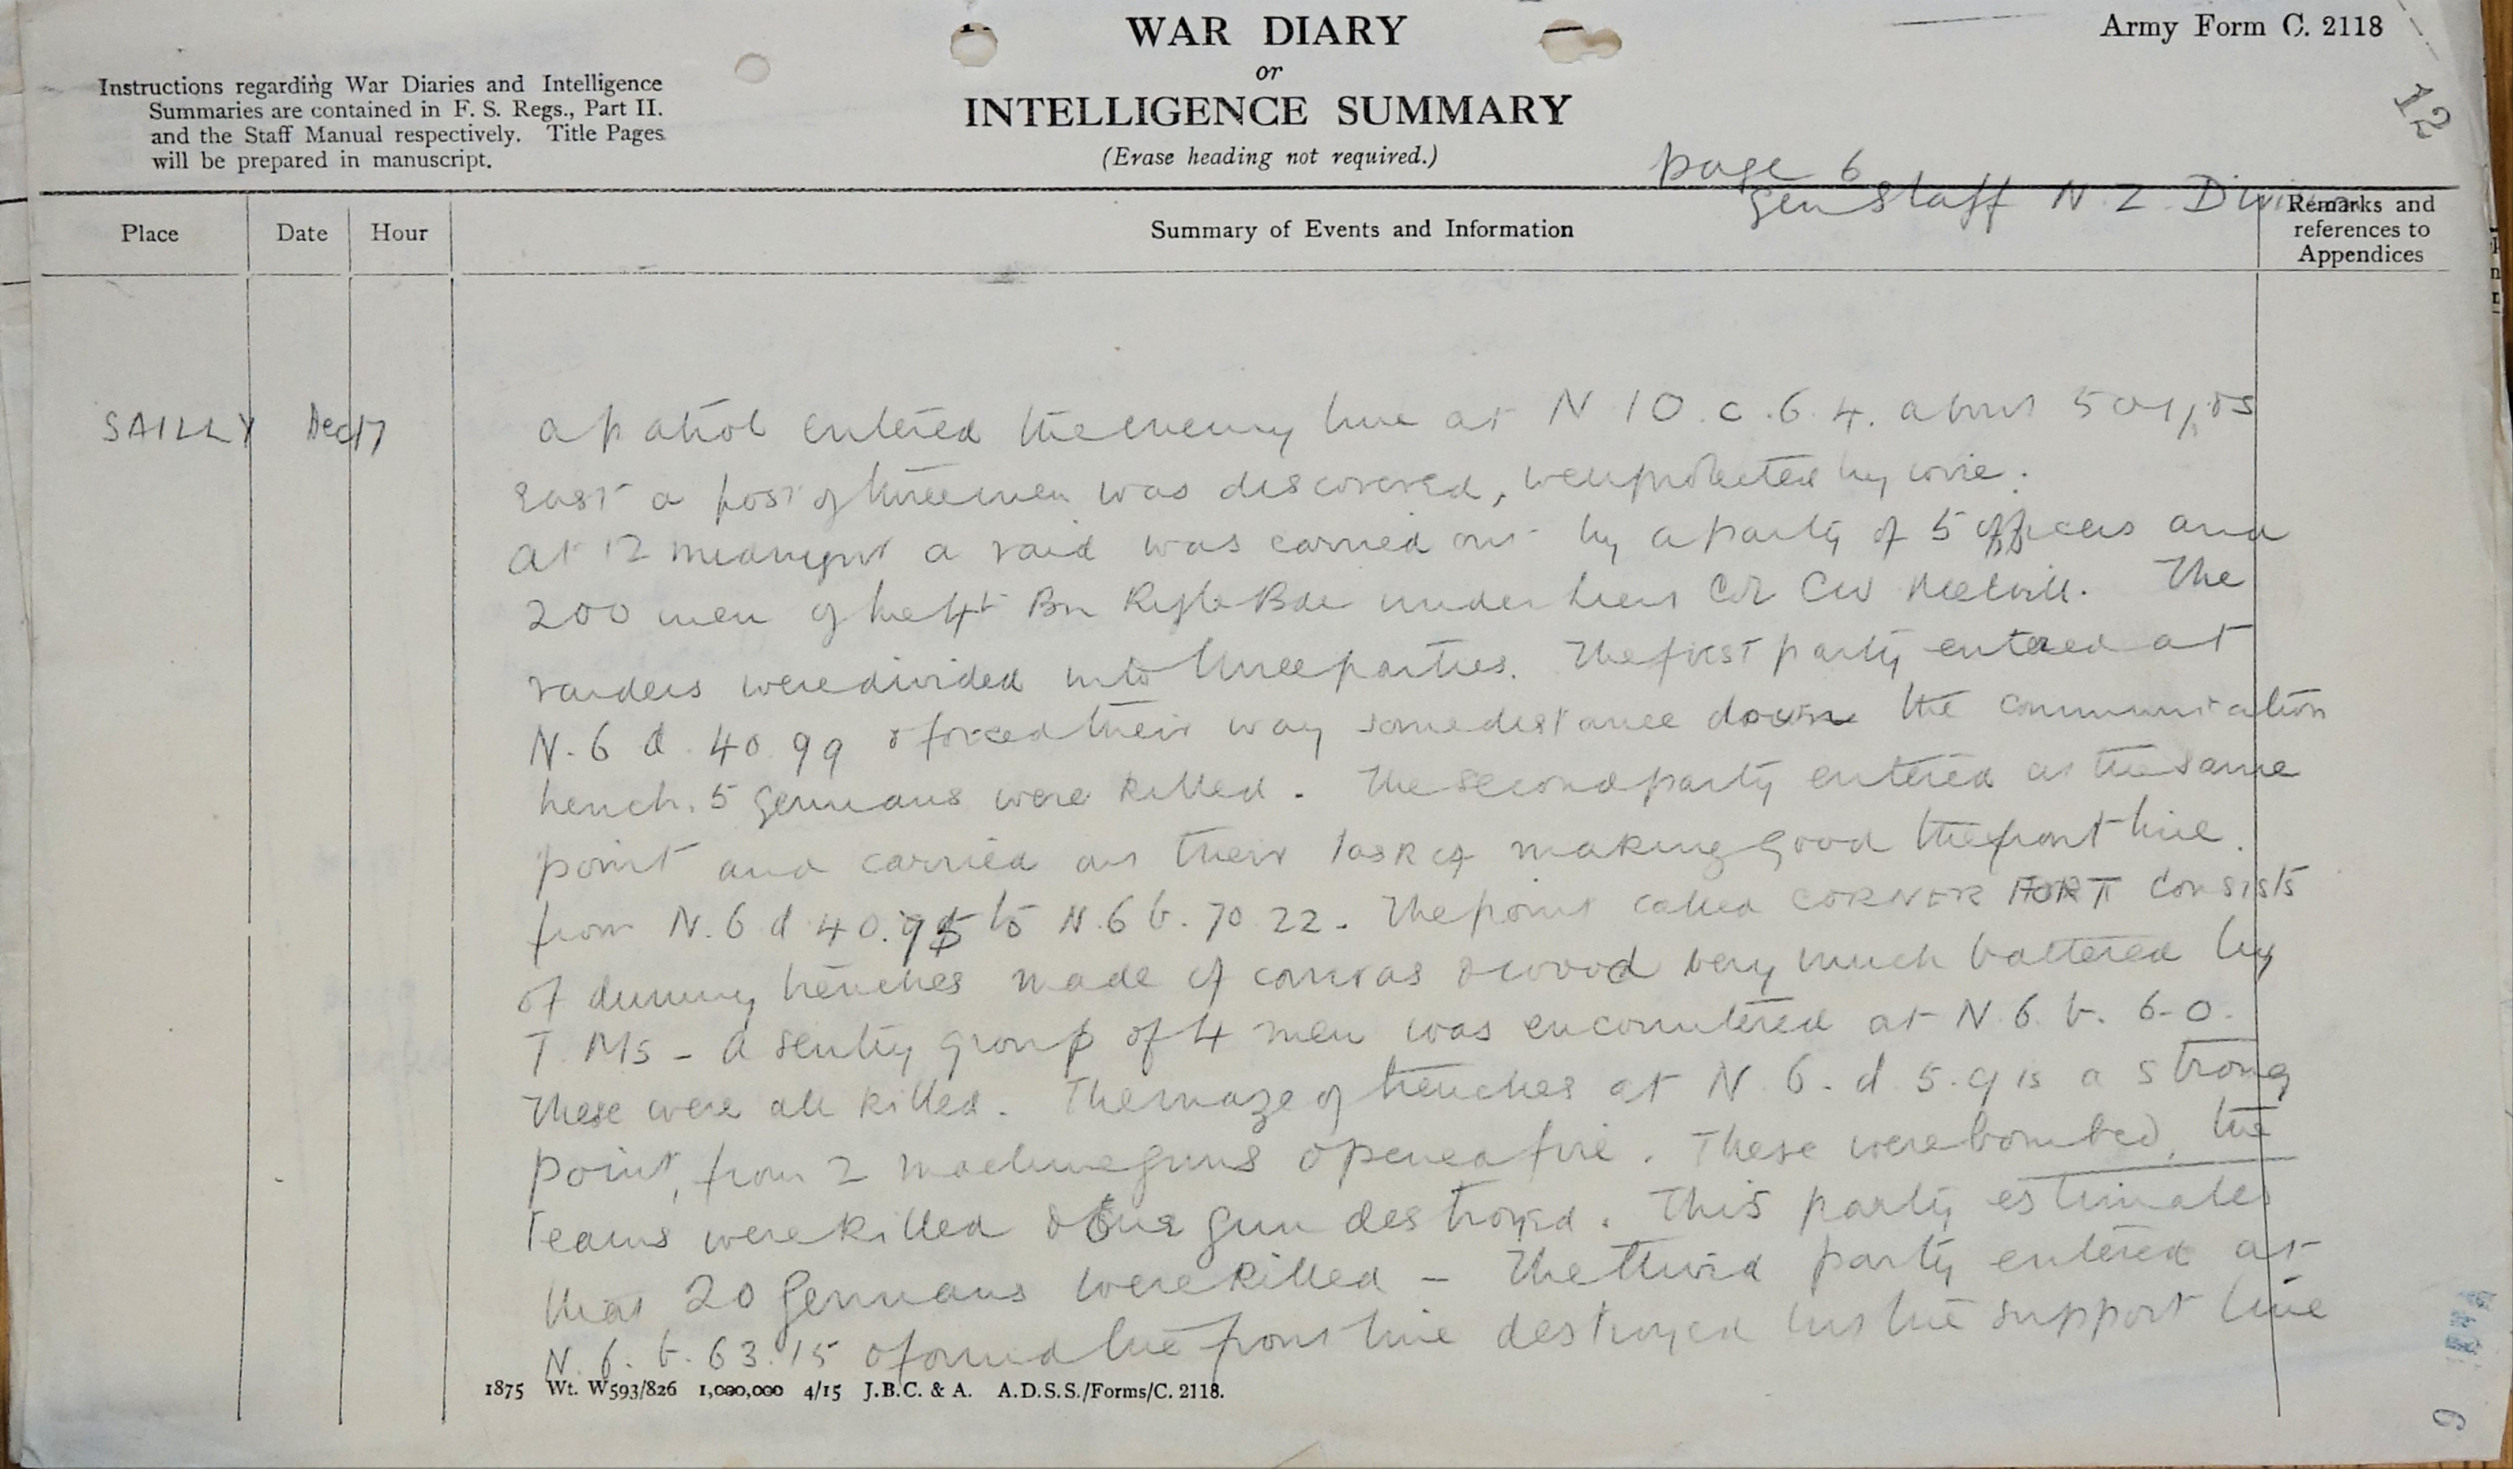 WAR DIARY
or
INTELLIGENCE SUMMARY
(Erase heading not required.)
Army Form C. 2118
12
Instructions regarding War Diaries and Intelligence
Summaries are contained in F. S. Regs., Part II.
and the Staff Manual respectively. Title Pages
will be prepared in manuscript.
page 6
Gen Staff N Z Division
Place
Date
Hour
Summary of Events and Information
Remarks and
references to
Appendices
SAILLY Dec 17 a patrol entered the enemy line at N 10.c.6 4. about 50 yds
east a post of three men was discovered, well protected by wire.
At 12 midnight a raid was carried out by a party of 5 officers and
200 men of the 4th Bn Rifle Bde under Lieut Col CW Melvill. The
raiders were divided into three parties. The first party entered at
N.6 d.40 99 & forced their way some distance down the communication
trench. 5 Germans were killed. The second party entered at the same
point and carried out their task of making good the front line.
from N.6 d 40.95 to N.6 b.70 22. The point called CORNER FORT consists
of dummy trenches made of canvas & wood very much battered by
T.Ms - A sentry group of 4 men was encountered at N 6.b.6-0.
These were all killed. The maze of trenches at N 6.d 5.9 is a strong
point, from 2 machine guns opened fire. These were bombed, the
teams were killed & one gun destroyed. This party estimates
that 20 Germans were killed - The third party entered at
N.6.b.63.15 & found the front line destroyed but the support line
1875 Wt. W593/826 1,000,000 4/15 J.B.C. & A. A.D.S.S./Forms/C. 2118.
9